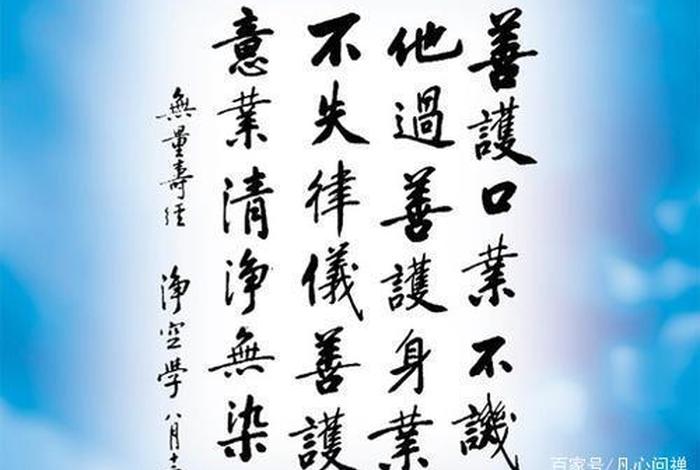 善護口業不譏
他過善護身業
不失律儀善護
意業清淨無染
無量壽經 淨空學 八月十
百家号/凡心问禅